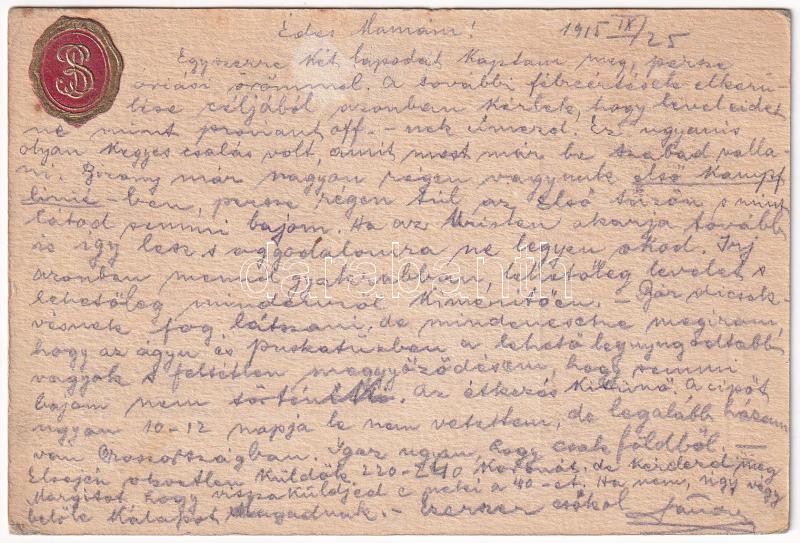 Édes Mamám! 1915 IX/25
SB
Egyszerre két lapodat kaptam meg, persze
óriási örömmel. A további félreértések elkerü-
lése céljából azonban kérlek, hogy leveleidet
ne mint proviant off. - nek címezd. Ez ugyanis
olyan kegyes csalás volt, amit most már be szabad valla-
ni. Bizony már nagyon régen vagyunk első Kampf
linie - ben, persze régen túl az első tűzön s mint
látod semmi bajom. Ha az Úristen akarja tovább
is így lesz s aggodalomra ne legyen okod. Írj
azonban mennél gyakrabban, lehetőleg levelet s
lehetőleg mindenről kimerítően. - Bár dicsek-
vésnek fog látszani, de mindenesetre megírom,
hogy az ágyu és puskatűzben a lehető legnyugodtabb
vagyok s feltétlen meggyőződésem, hogy semmi
bajom nem történ. Az étkezés kitünő. A cipőt
ugyan 10-12 napja le nem vetettem, de legalább házam
van Oroszországban. Igaz ugyan, hogy csak földből. -
Elsején okvetlen küldök 220-240 koronát, de kérdezd meg
Margitot hogy visszaküldjed e neki a 40-et. Ha nem, úgy végy
belőle kalapot magadnak. - Ezerszer csókol János
darabanth